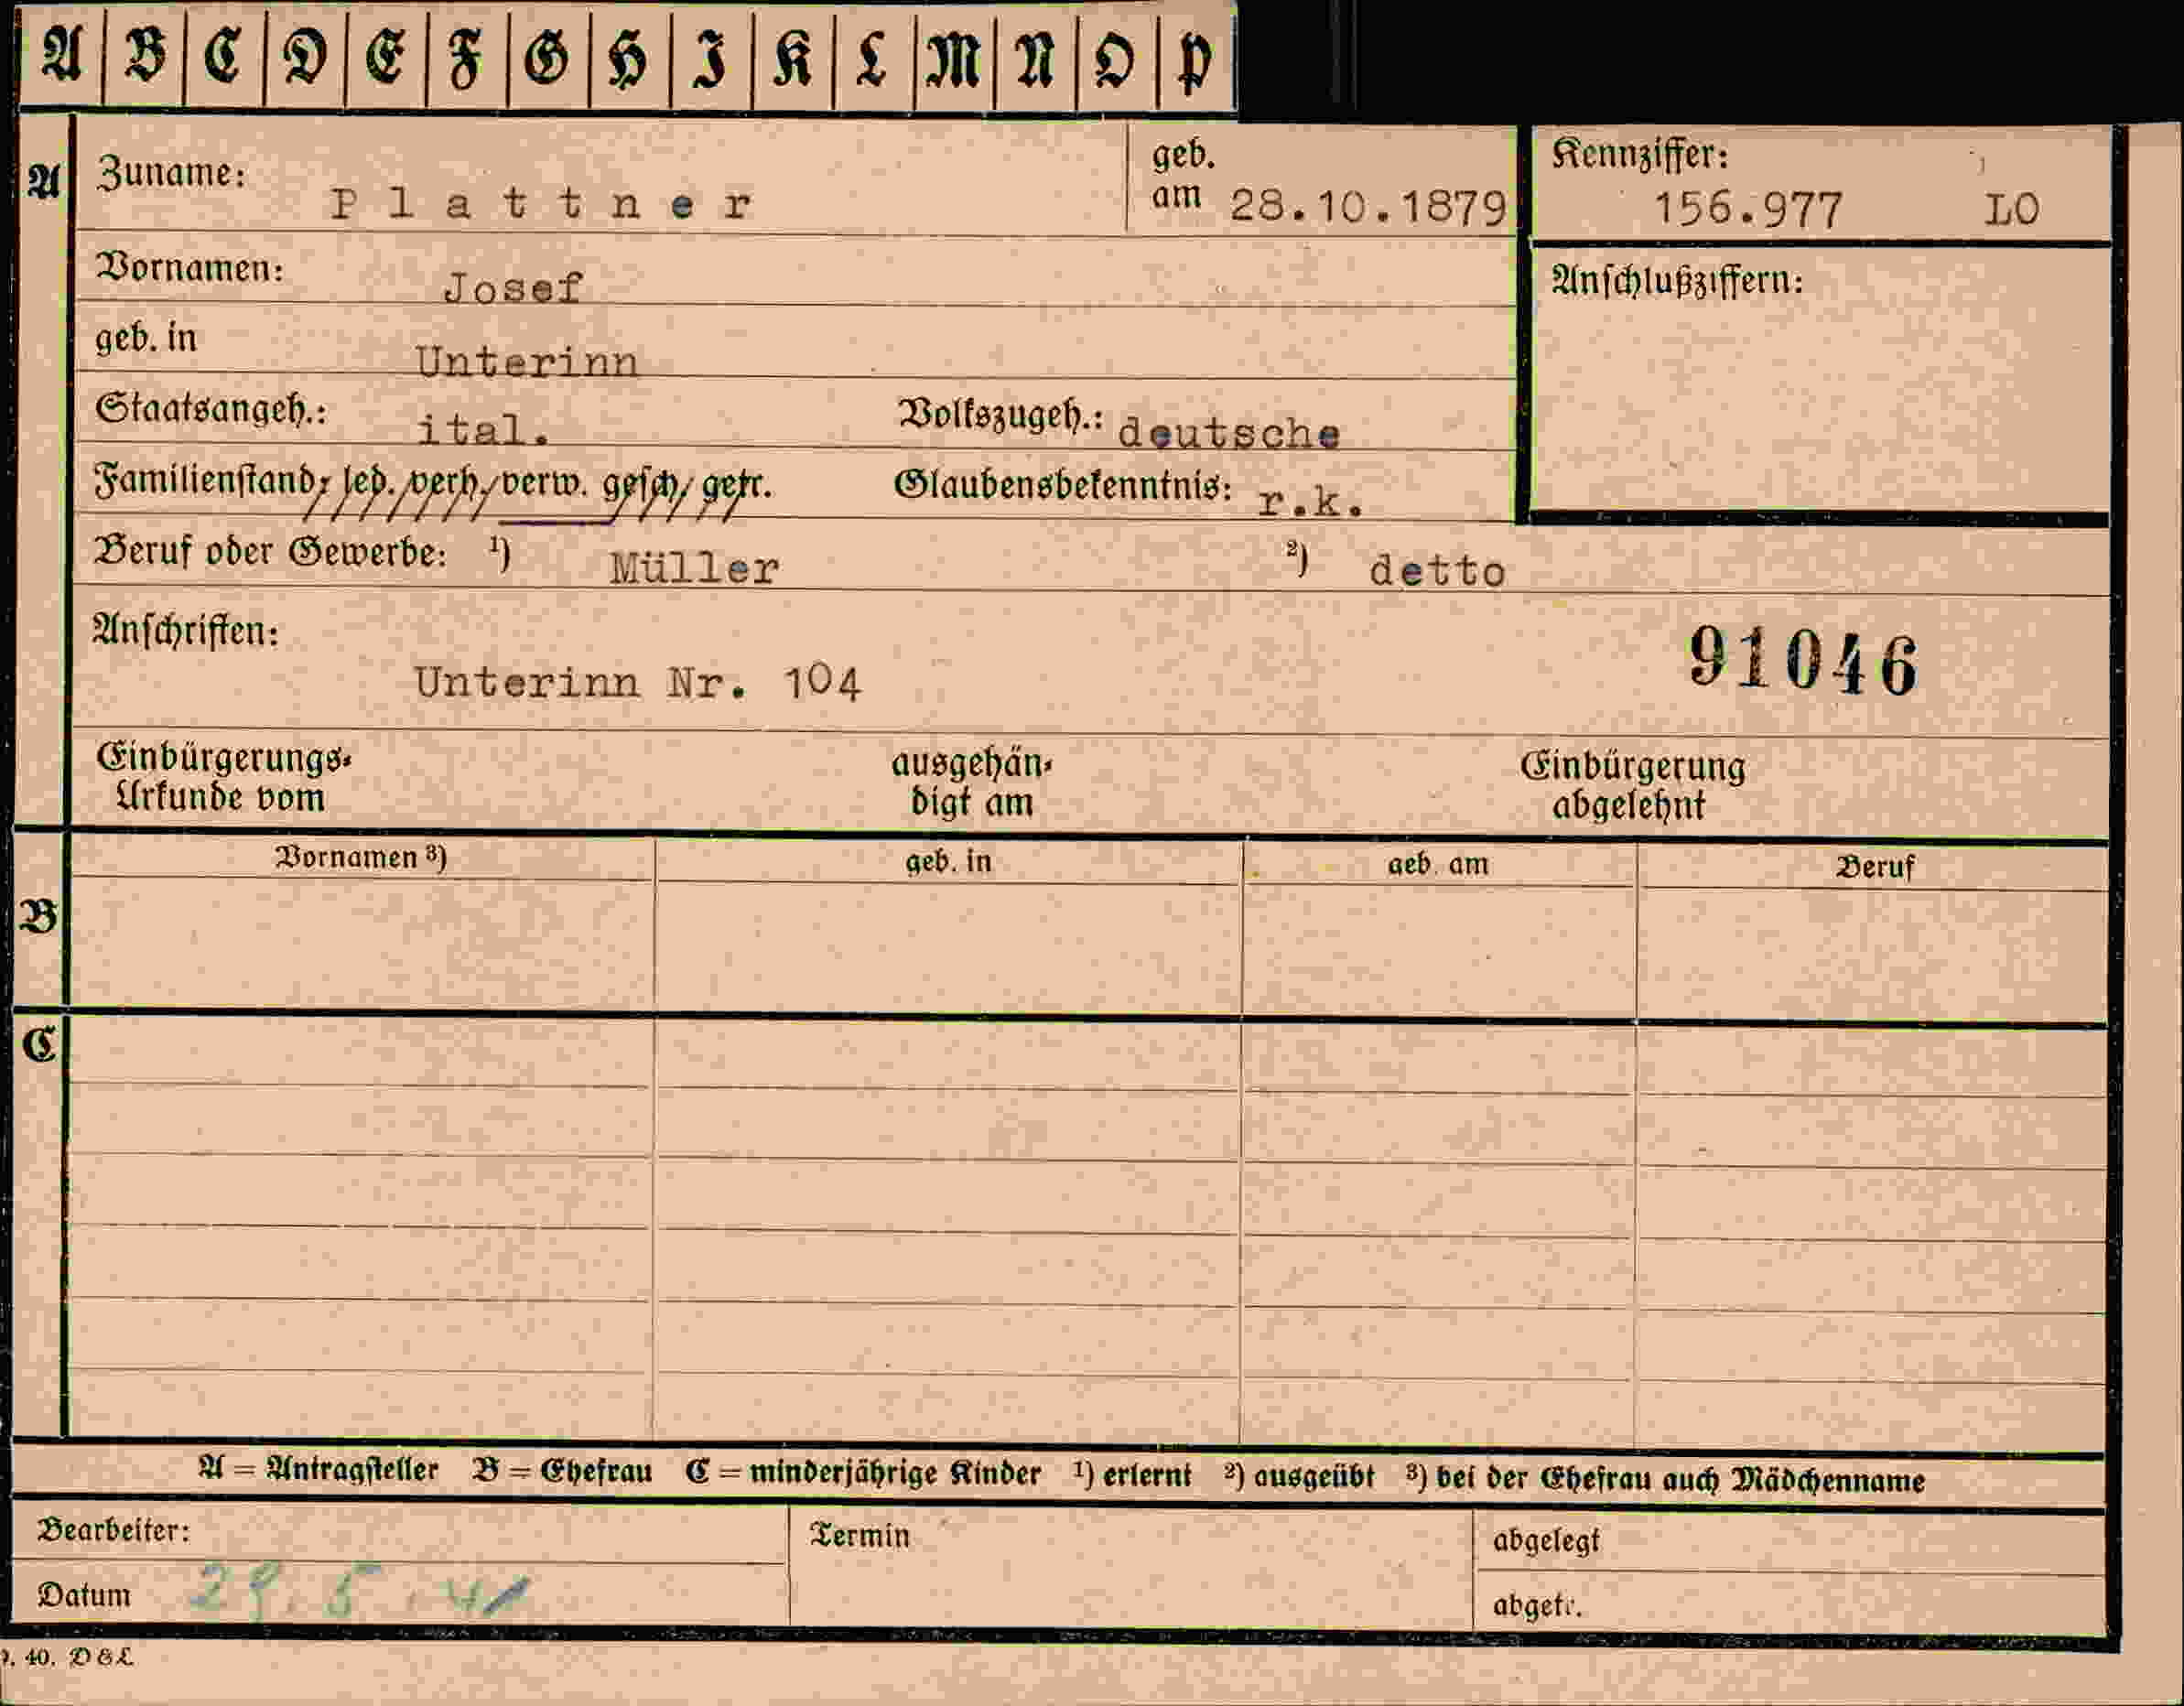 A B C D E F G H I K L M N O P
A Zuname: Plattner geb. am 28.10.1879 Kennziffer: 156.977 LO
Vornamen: Josef Anschlußziffern:
geb. in Unterinn
Staatsangeh.: ital. Volkszugeh.: deutsche
Familienstand: led. verh. verw. gesch. getr. Glaubensbekenntnis: r.k.
Beruf oder Gewerbe: ¹) Müller ²) detto
Anschriften: 91046
Unterinn Nr. 104
Einbürgerungs- ausgehän- Einbürgerung
Urkunde vom digt am abgelehnt
Vornamen ³) geb. in geb. am Beruf
B
C
A = Antragsteller B = Ehefrau C = minderjährige Kinder ¹) erlernt ²) ausgeübt ³) bei der Ehefrau auch Mädchenname
Bearbeiter: Termin abgelegt
Datum 29.5.41 abgetr.
40. D&L